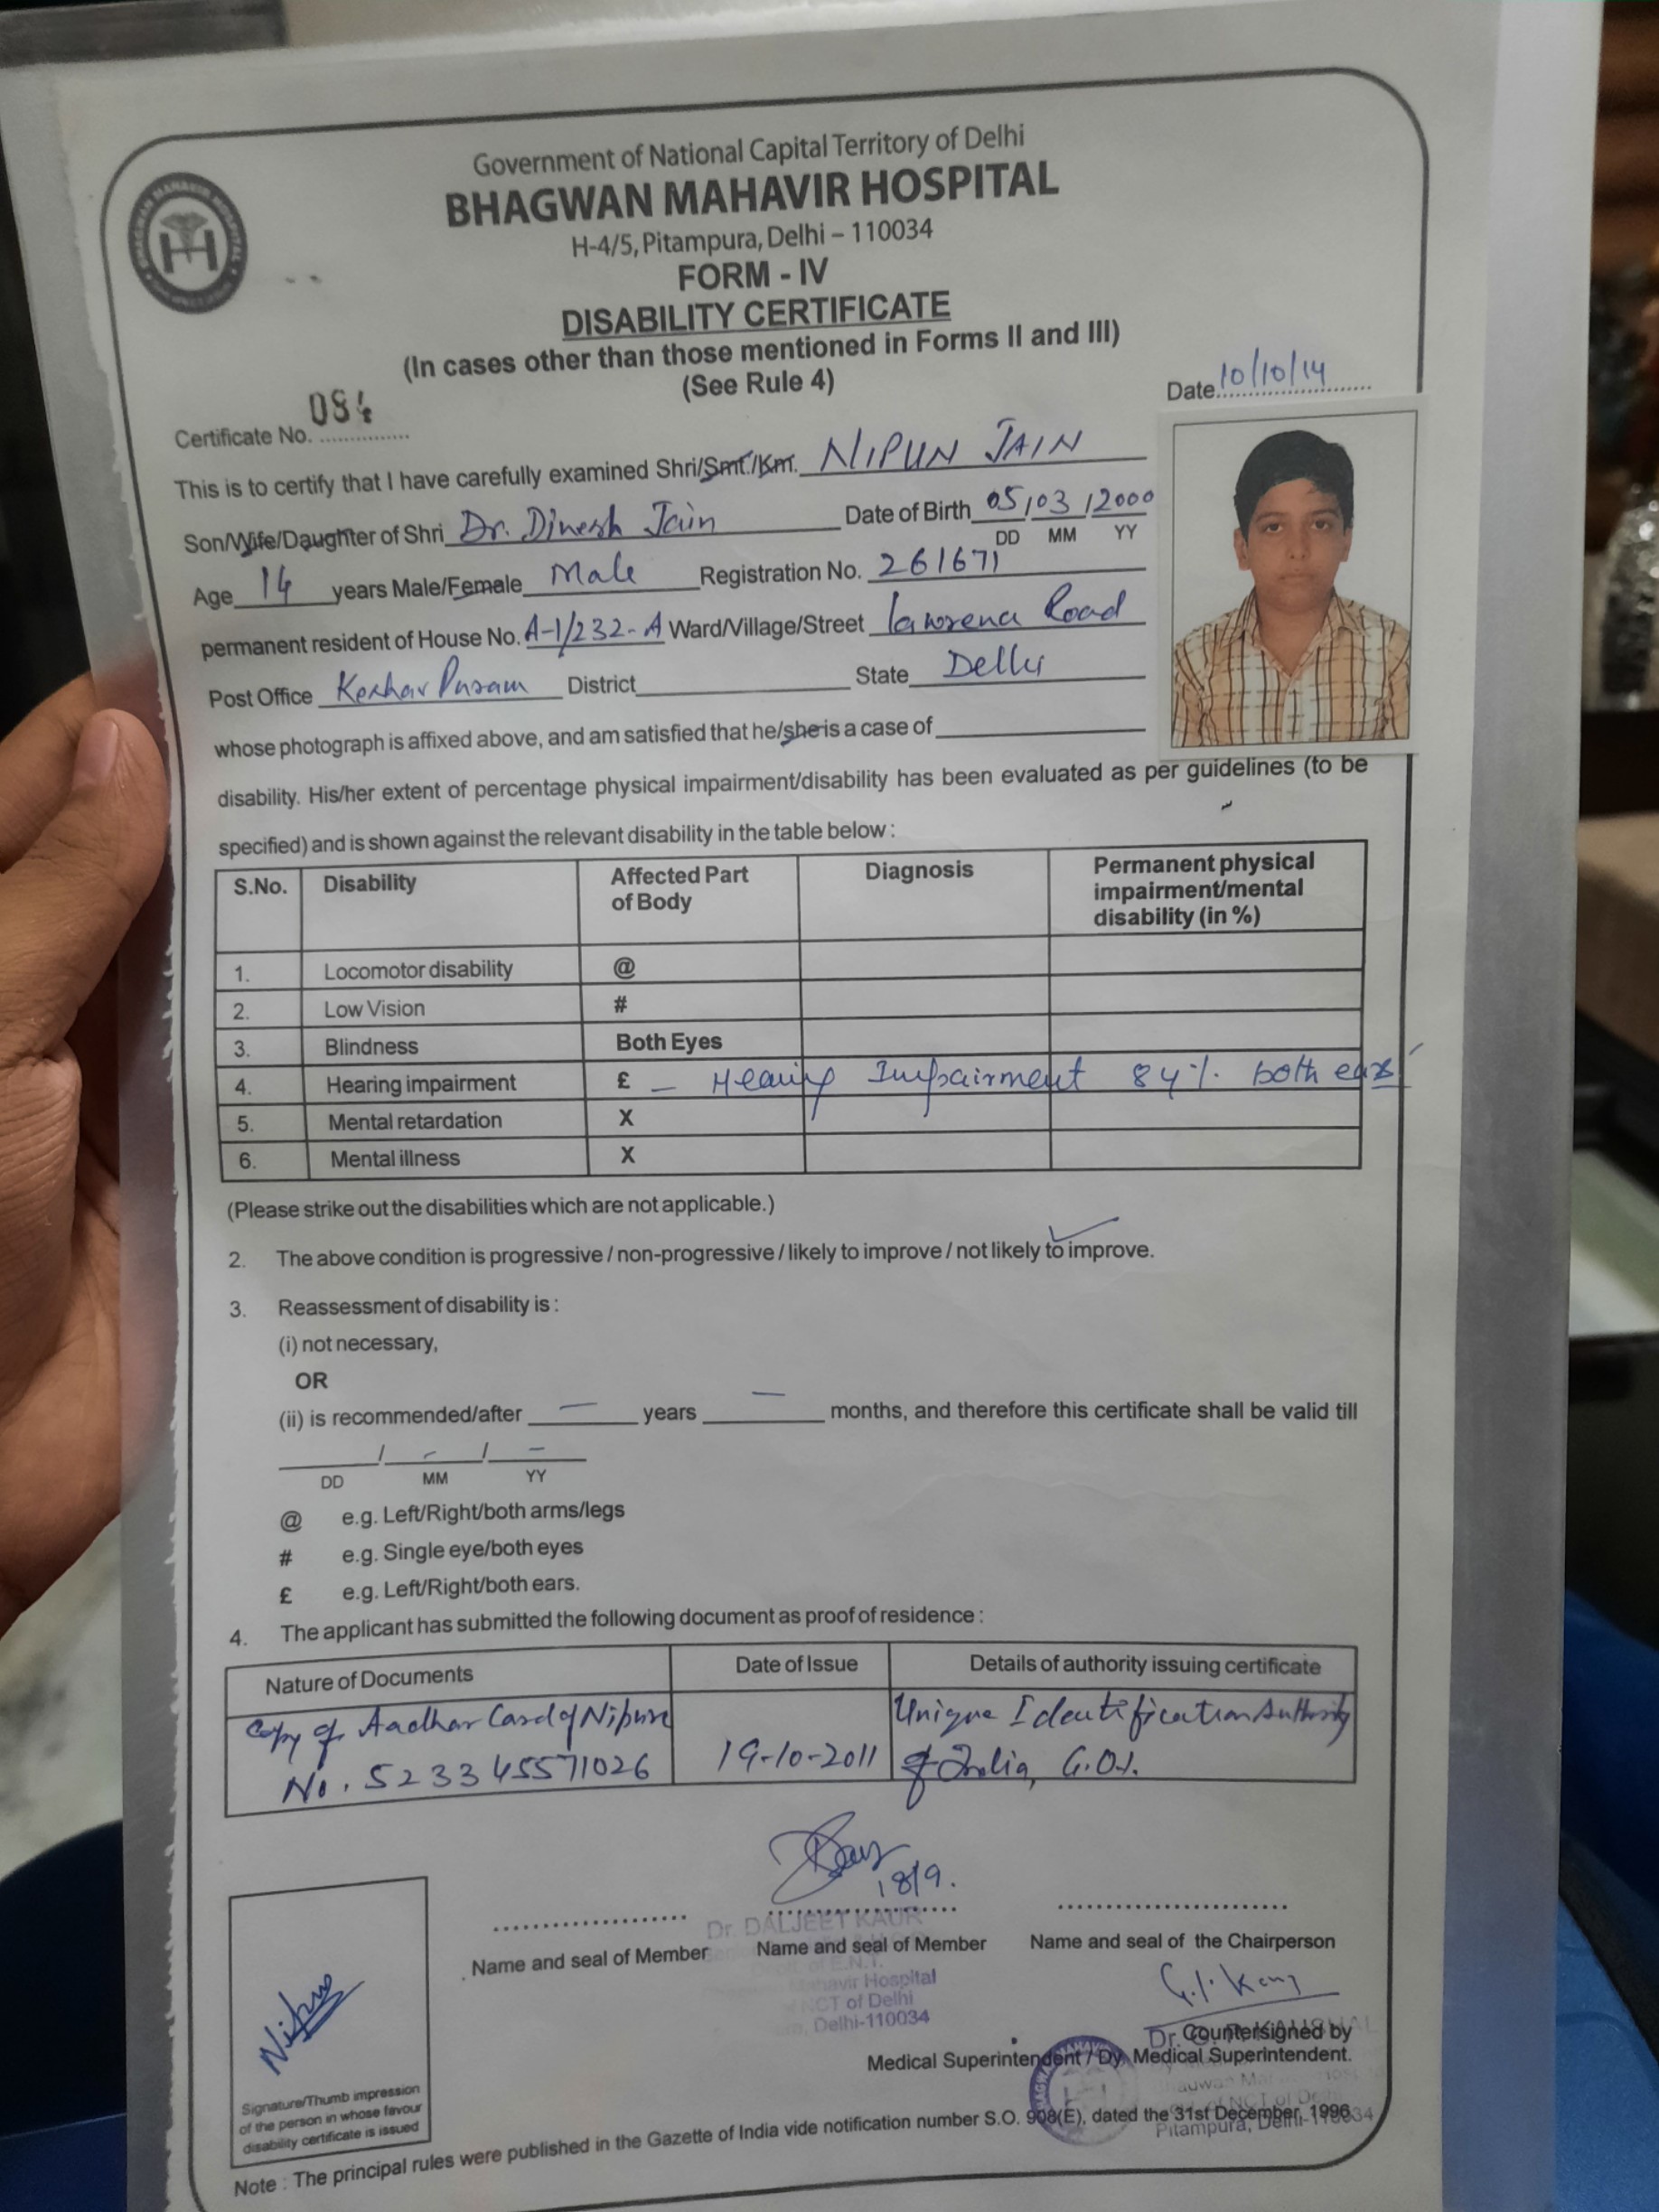 Government of National Capital Territory of Delhi
BHAGWAN MAHAVIR HOSPITAL
H-4/5, Pitampura, Delhi – 110034
FORM - IV
DISABILITY CERTIFICATE
(In cases other than those mentioned in Forms II and III)
(See Rule 4)
Date 10/10/14
Certificate No.
This is to certify that I have carefully examined Shri/Smt./Km. NIPUN JAIN
Son/Wife/Daughter of Shri Dr. Dinesh Jain Date of Birth 05/03/2000
DD MM YY
Age 14 years Male/Female Male Registration No. 261671
permanent resident of House No. A-1/232-A Ward/Village/Street Lawrence Road
Post Office Keshav Puram District State Delhi
whose photograph is affixed above, and am satisfied that he/she is a case of
disability. His/her extent of percentage physical impairment/disability has been evaluated as per guidelines (to be
specified) and is shown against the relevant disability in the table below :
S.No. Disability Affected Part of Body Diagnosis Permanent physical impairment/mental disability (in %)
1. Locomotor disability @
2. Low Vision #
3. Blindness Both Eyes
4. Hearing impairment £ – Hearing Impairment 84% both ears
5. Mental retardation X
6. Mental illness X
(Please strike out the disabilities which are not applicable.)
2. The above condition is progressive / non-progressive / likely to improve / not likely to improve.
3. Reassessment of disability is :
(i) not necessary,
OR
(ii) is recommended/after — years — months, and therefore this certificate shall be valid till
/ - / -
DD MM YY
@ e.g. Left/Right/both arms/legs
# e.g. Single eye/both eyes
£ e.g. Left/Right/both ears.
4. The applicant has submitted the following document as proof of residence :
Nature of Documents Date of Issue Details of authority issuing certificate
Copy of Aadhar Card of Nipun 19-10-2011 Unique Identification Authority
No. 5233 45571026 of India, G.O.I.
18/9.
Dr. DALJEET KAUR
Name and seal of Member Name and seal of Member Name and seal of the Chairperson
E.N.T.
Hospital
NCT of Delhi
Delhi-110034
Nipun
Countersigned by
Medical Superintendent / Dy. Medical Superintendent.
Signature/Thumb impression
of the person in whose favour
disability certificate is issued
Pitampura, Delhi-110034
Note : The principal rules were published in the Gazette of India vide notification number S.O. 908(E), dated the 31st December, 1996.